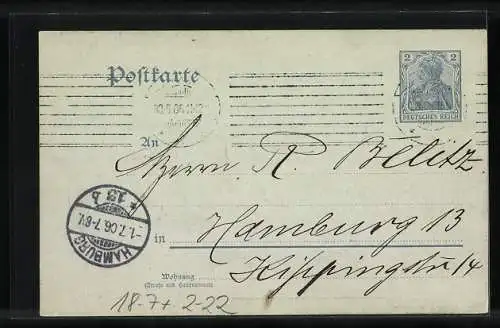 Postkarte
2 2
DEUTSCHES REICH
An
Herrn R. Belitz
HAMBURG
* 13 b
-1.7.06.7-8V.
in
Hamburg 13
Kippingstr 14
Wohnung
(Straße und Hausnummer)
18-7+ 2-22